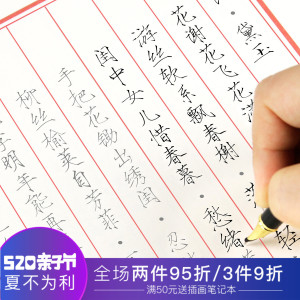 黛玉
花谢花飞花满
游丝软系飘春榭 轻
闺中女儿惜春暮 愁绪
手把花锄出绣闺 忍
柳丝榆荚自芳菲
李明年能再
520亲子节
夏不为利
全场两件95折/3件9折
满50元送插画笔记本